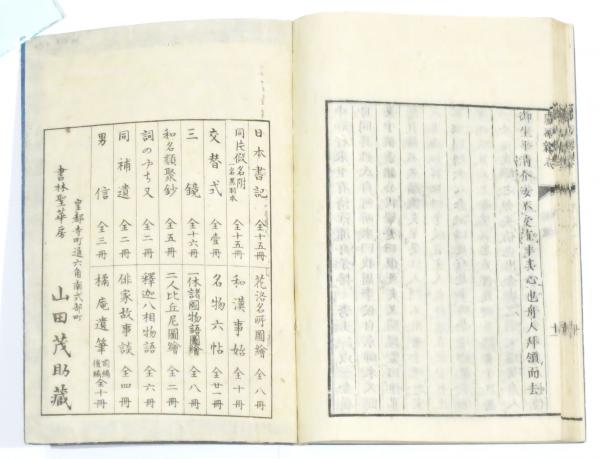 御生平清介故不受 事真心也舟人拜領而去
日本書記 全十五冊
同片假名附 一名黒羽本 全十五冊
交替式 全壹冊
三鏡 全十六冊
和名類聚鈔 全五冊
詞のやち又 全二冊
同補遺 全二冊
男信 全三冊
花洛名所圖繪 全八冊
和漢事始 全十冊
名物六帖 全廿一冊
一休諸國物語圖繪 全八冊
二人比丘尼圖繪 全二冊
釋迦八相物語 全六冊
俳家故事談 全四冊
橘庵遺筆 前編後編 全十冊
皇都寺町通六角南式部町
書林聖華房 山田茂助藏